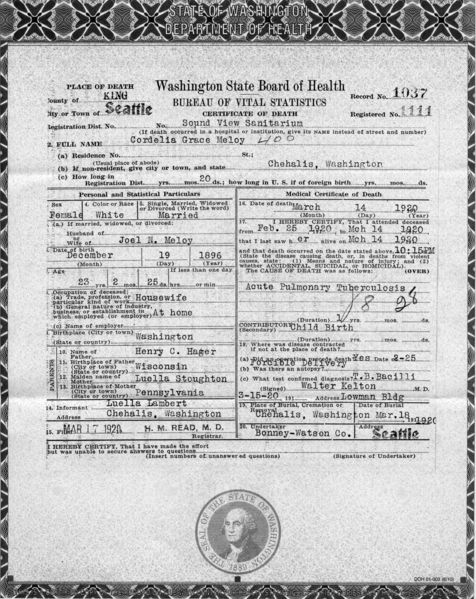 STATE OF WASHINGTON
DEPARTMENT OF HEALTH
PLACE OF DEATH
County of KING
City or Town of Seattle
Registration Dist. No.
Washington State Board of Health
BUREAU OF VITAL STATISTICS
CERTIFICATE OF DEATH
Record No. 1037
Registered No. 1111
No. Sound View Sanitarium
(If death occurred in a hospital or institution, give its NAME instead of street and number)
2. FULL NAME Cordelia Grace Meloy 400
(a) Residence No. St.;
(Usual place of abode)
(b) If non-resident, give city or town, and state Chehalis, Washington
(c) How long in
Registration Dist. yrs. mos. 20 ds.; how long in U. S. if of foreign birth yrs. mos. ds.
Personal and Statistical Particulars
Sex
Female
4. Color or Race
White
5. Single, Married, Widowed
or Divorced (Write the word)
Married
(a.) If married, widowed, or divorced:
Husband of
Wife of Joel N. Meloy
Date of birth
December 19 1896
(Month) (Day) (Year)
Age
23 yrs. 2 mos. 25 ds.
If less than one day
hrs. or min
Occupation of deceased
(a) Trade, profession, or
particular kind of work Housewife
(b) General nature of Industry,
business, or establishment in
which employed (or employer) At home
(c) Name of employer
Birthplace (City or town)
(State or country) Washington
PARENTS
10. Name of
Father Henry C. Hager
11. Birthplace of Father
(City or town)
(State or country) Wisconsin
12. Maiden name of
Mother Luella Stoughton
13. Birthplace of Mother
(City or town)
(State or country) Pennsylvania
14. Informant Luella Lambert
Address Chehalis, Washington
15. Filed MAR 17 1920 H. M. READ, M. D.
Registrar.
Medical Certificate of Death
16. Date of death
March 14 1920
(Month) (Day) (Year)
17. I HEREBY CERTIFY, That I attended deceased
from Feb. 25 1920, to Mch 14 1920
that I last saw h er alive on Mch 14 1920
and that death occurred on the date stated above, 10:15PM
(State the disease causing death, or, in deaths from violent
causes, state: (1) Means and nature of injury; and (2)
whether ACCIDENTAL, SUICIDAL, or HOMICIDAL).
The CAUSE OF DEATH was as follows: (OVER)
Acute Pulmonary Tuberculosis
(Duration) yrs. mos. ds.
CONTRIBUTORY Child Birth
(Secondary)
(Duration) yrs. mos. ds.
18. Where was disease contracted
if not at the place of death
(a) Did an operation precede death Yes Date 2-25
Forcible Delivery
(b) Was there an autopsy?
(c) What test confirmed diagnosis T.B.Bacilli
(Signed) Walter Kelton M. D.
3-15-20 191 Address Lowman Bldg
19. Place of Burial, Cremation or Removal Date of Burial
Chehalis, Washington Mar.18, 1920
20. Undertaker Address
Bonney-Watson Co. Seattle
I HEREBY CERTIFY, That I have made the effort
but was unable to secure answers to questions
(Insert numbers of unanswered questions) (Signature of Undertaker)
THE SEAL OF THE STATE OF WASHINGTON
1889